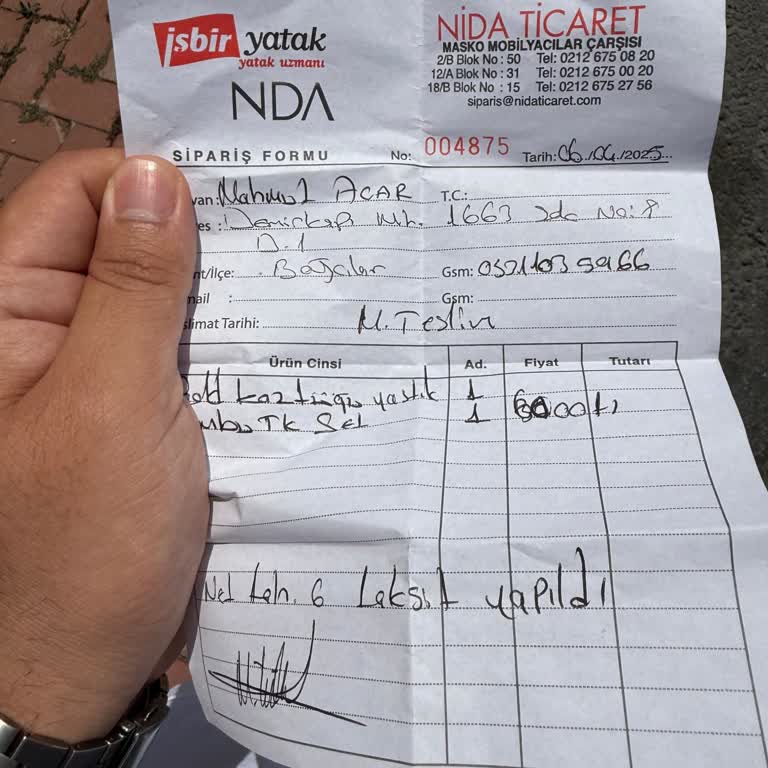 işbir yatak
yatak uzmanı
NDA
NİDA TİCARET
MASKO MOBİLYACILAR ÇARŞISI
2/B Blok No : 50 Tel: 0212 675 08 20
12/A Blok No : 31 Tel: 0212 675 00 20
18/B Blok No : 15 Tel: 0212 675 27 56
siparis@nidaticaret.com
SİPARİŞ FORMU No: 004875 Tarih: 06./04./2025
van: Mahmut ACAR T.C.:
es : Demirkapı Mh. 1663 No: D.1
nt/İlçe: Bağcılar Gsm:
mail : Gsm:
slimat Tarihi: M. Teslim
Ürün Cinsi Ad. Fiyat Tutarı
kaztüyü yastık 1
TK Set 1
Net 6 taksit yapıldı